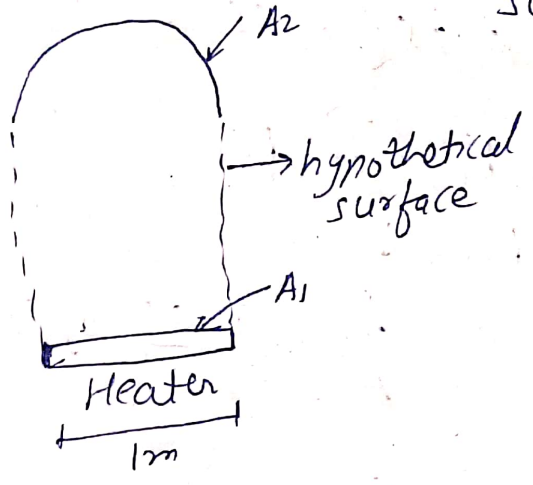 A2
hypothetical
surface
A1
Heater
1m